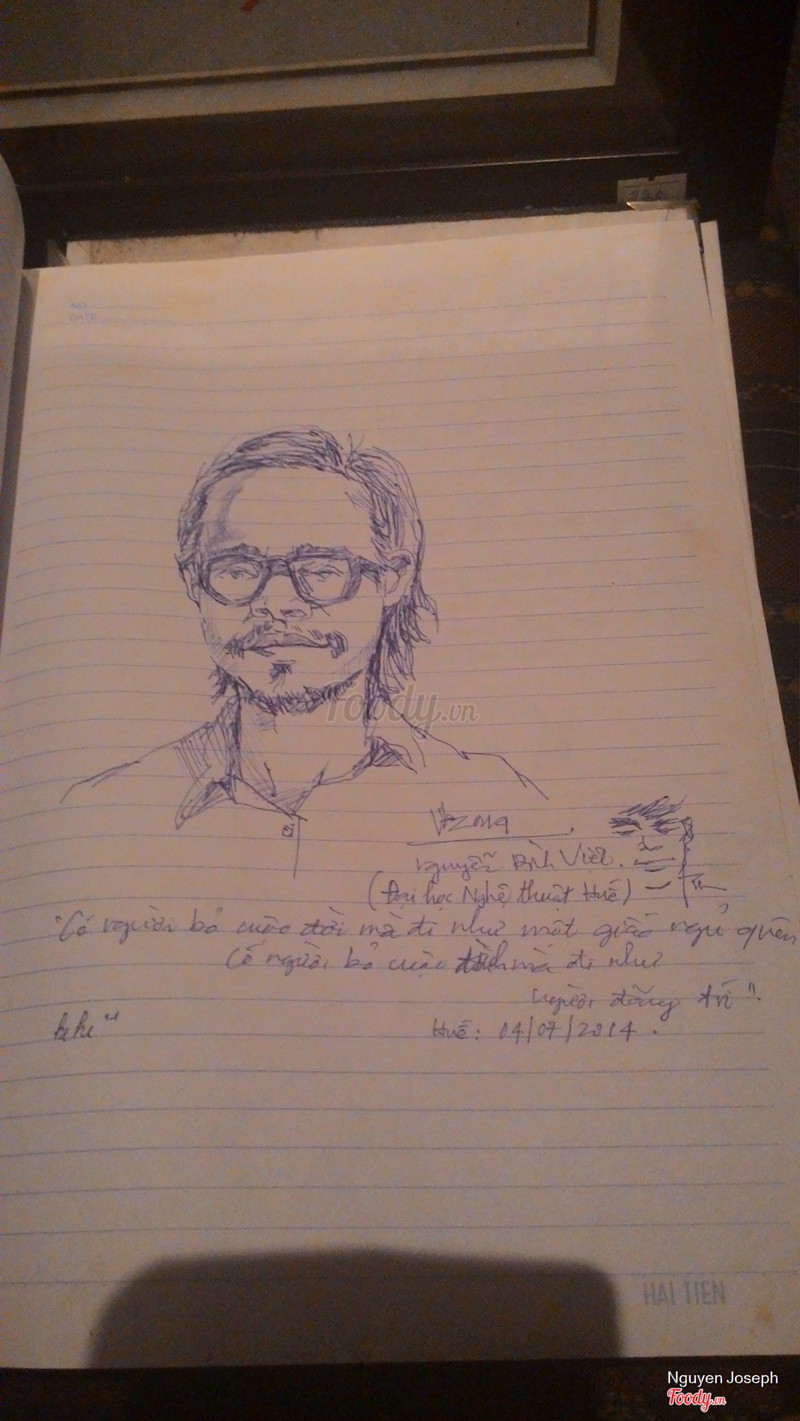 NO
DATE
foody.vn
Nguyễn Bình Việt.
(Đại học Nghệ thuật Huế)
"Có người bỏ cuộc đời mà đi như một giấc ngủ quên
Có người bỏ cuộc tình mà đi như
người đãng trí".
hehe
Huế: 04/07/2014.
HAI TIEN
Nguyen Joseph
Foody.vn